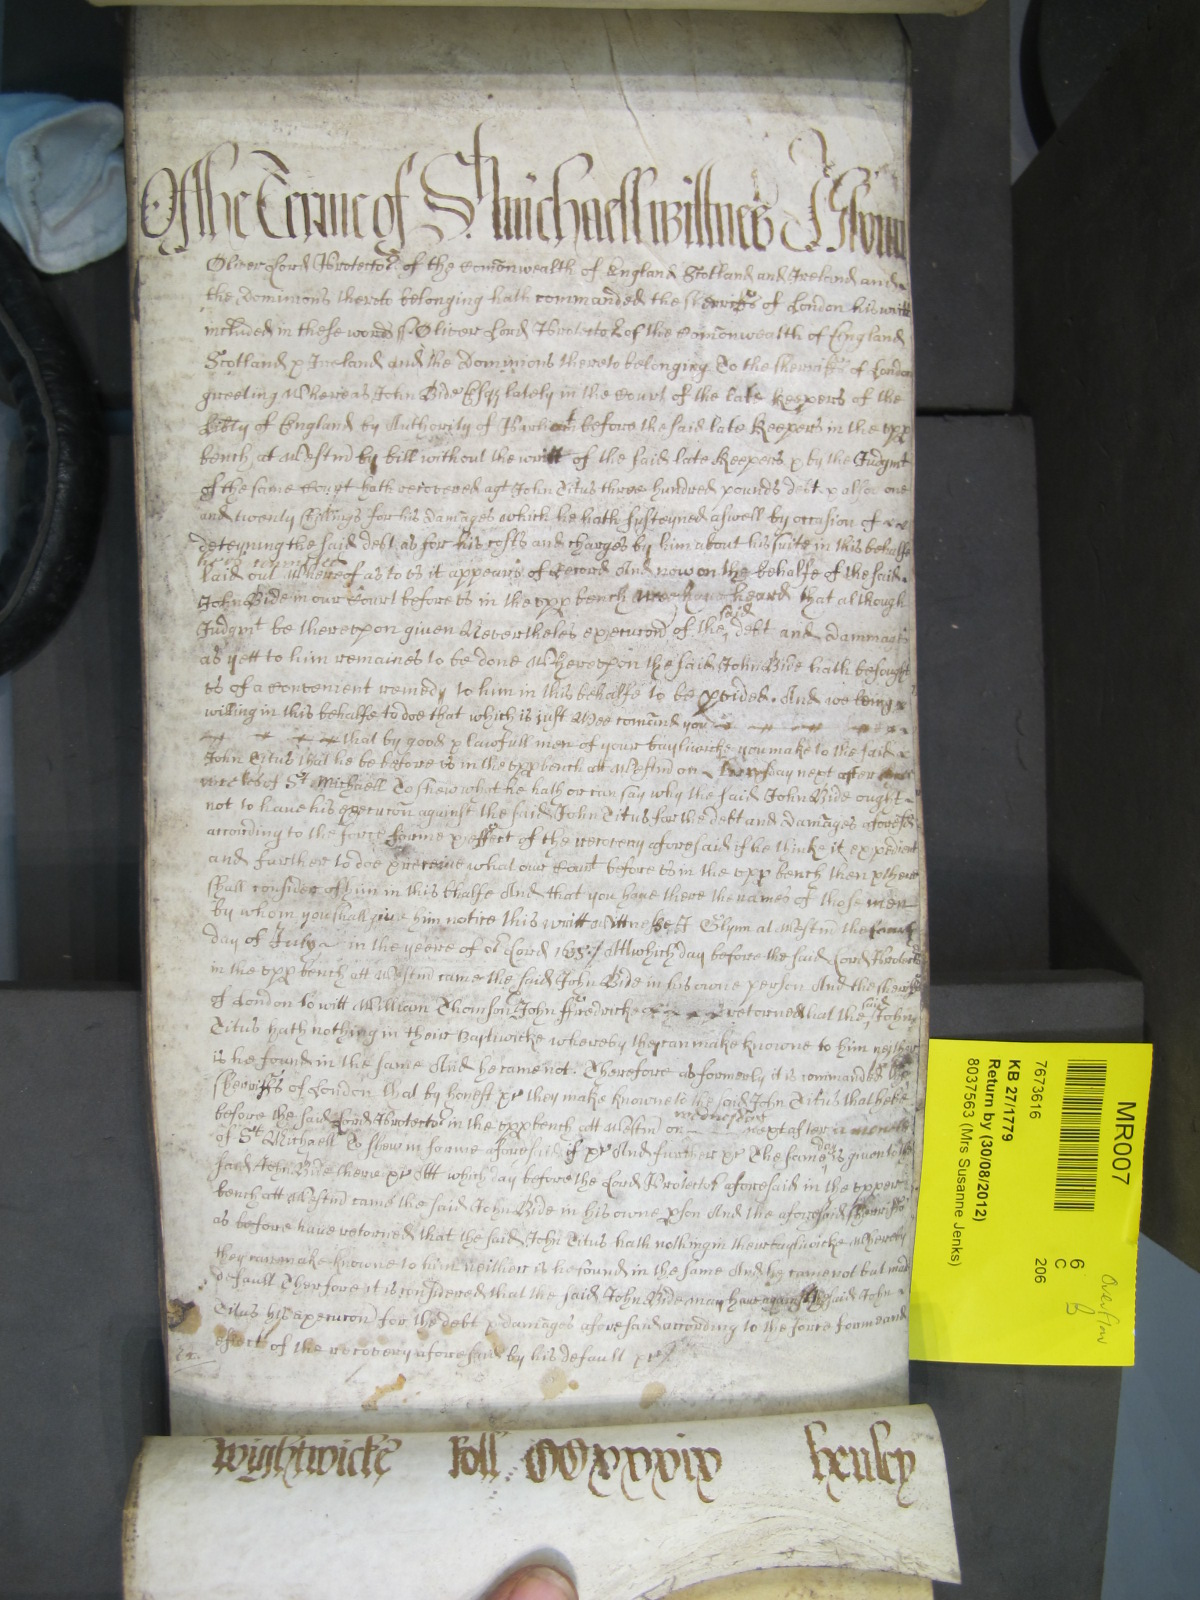 Of the Terme of St. Michaell wittnes H Glynn
Oliver Lord Protector of the Comonwealth of England Scotland and Ireland and
the Dominions thereto belonging hath commanded the Sherriffs of London his writt
included in these words ss Oliver Lord Protector of the Comonwealth of England
Scotland & Ireland and the Dominions thereto belonging To the Sherriffs of London
greeting Whereas John Bide Esqr lately in the Court of the late Keepers of the
Libty of England by Authority of Parliamt before the said late Keepers in the upp
bench at Westmr by bill without the writt of the said late Keepers & by the Judgmt
of the same Court hath recovered agt John Titus three hundred pounds debt & also one
and twenty shillings for his damages which he hath susteyned aswell by occasion of
deteyning the said debt as for his costs and charges by him about his suite in this behalfe
laid out Whereof as to us it appeares of Record And now on the behalfe of the said
John Bide in our Court before us in the upp bench wee have heard that although
Judgmt be thereupon given Nevertheles execucon of the said debt and dammages
as yett to him remaines to be done Whereupon the said John Bide hath besought
us of a convenient remedy to him in this behalfe to be pvided. And we being
willing in this behalfe to doe that which is just Wee comand you
that by good & lawfull men of your bayliwicke you make to the said
John Titus that he be before us in the upp bench att Westmr on day next after
weekes of St Michaell To shew what he hath or can say why the said John Bide ought
not to have his execucon against the said John Titus for the debt and damages aforesd
according to the force forme & effect of the recovery aforesaid if he thinke it expedient
and further to doe & receive what our Court before us in the upp bench then & there
shall consider of him in this bhalfe And that you have there the names of those men
by whom you shall give him notice & this writt Wittnes H Glynn at Westmr the
day of July in the yeere of or Lord 1657 Att which day before the said Lord Protector
in the upp bench att Westmr came the said John Bide in his owne person And the sherriffs
of London to witt William Thomson John ffredricke retorned that the said John
Titus hath nothing in their Baylwicke whereby they can make knowne to him neither
is he found in the same And he came not. Therefore as formerly it is commanded the
sherriffs of London that by honest &c they make knowne to the said John Titus that he be
before the said Lord Protector in the upp bench att Westmr on wednesday next after
of St Michaell To shew in forme aforesaid if &c And further &c The same day is given to the
said John Bide there &c Att which day before the Lord Protector aforesaid in the upper
bench att Westmr came the said John Bide in his owne pson And the aforesaid Sherriffs
as before have retorned that the said John Titus hath nothing in their baylwicke whereby
they can make knowne to him neither is he found in the same And he came not but made
default Therfore it is considered that the said John Bide may have against the said John
Titus his execucon for the debt & damages aforesaid according to the force forme and
effect of the recovery aforesaid by his default &c
Wightwicke Roll CCxxxix Henley
MR007
6
C
206
Overflow
7673616
KB 27/1779
Return by (30/08/2012)
8037563 (Mrs Susanne Jenks)